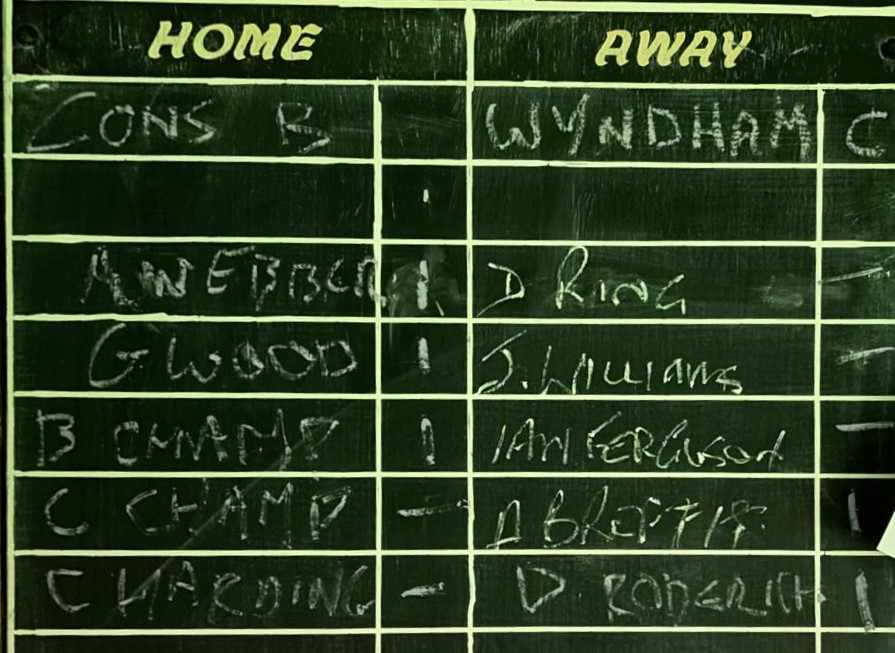 HOME AWAY
CONS B WYNDHAM C
WEBBER 1 D RING -
G. WOOD 1 J. WILLIAMS -
B CHAMP 1 IAN FERGUSON -
C CHAMP - A 1
C HARDING - D RODERICH 1